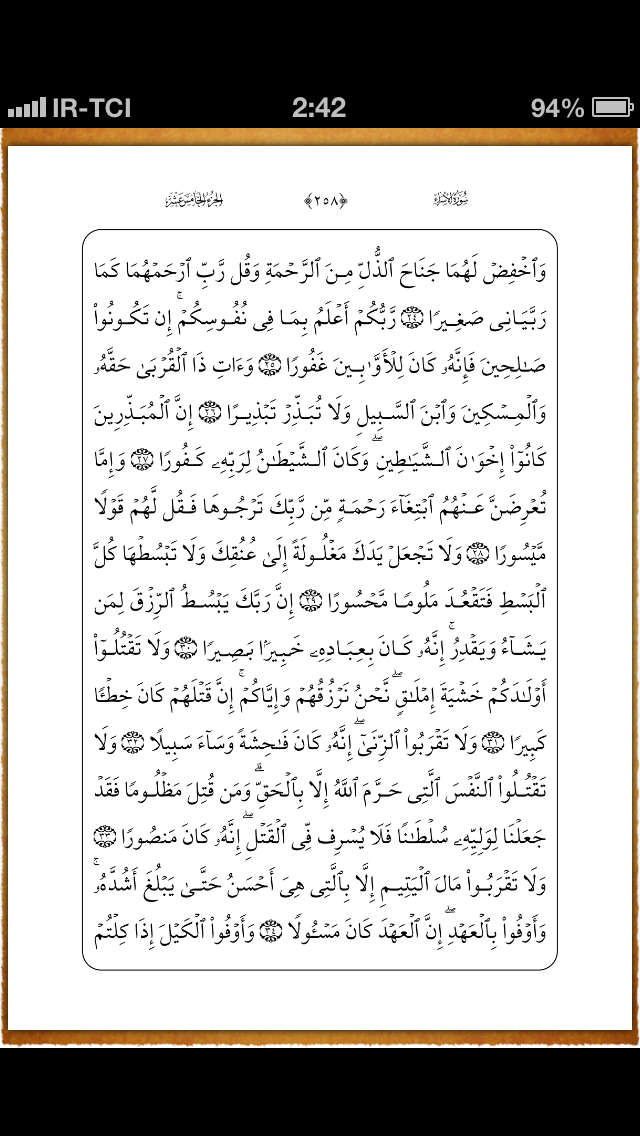 IR-TCI 2:42 94%
سُورَةُ الإِسْرَاءِ ﴿٢٥٨﴾ الجُزْءُ الخَامِسَ عَشَرَ
وَٱخْفِضْ لَهُمَا جَنَاحَ ٱلذُّلِّ مِنَ ٱلرَّحْمَةِ وَقُل رَّبِّ ٱرْحَمْهُمَا كَمَا
رَبَّيَانِى صَغِيرًا ٢٤ رَّبُّكُمْ أَعْلَمُ بِمَا فِى نُفُوسِكُمْ ۚ إِن تَكُونُوا۟
صَـٰلِحِينَ فَإِنَّهُۥ كَانَ لِلْأَوَّٰبِينَ غَفُورًا ٢٥ وَءَاتِ ذَا ٱلْقُرْبَىٰ حَقَّهُۥ
وَٱلْمِسْكِينَ وَٱبْنَ ٱلسَّبِيلِ وَلَا تُبَذِّرْ تَبْذِيرًا ٢٦ إِنَّ ٱلْمُبَذِّرِينَ
كَانُوٓا۟ إِخْوَٰنَ ٱلشَّيَـٰطِينِ ۖ وَكَانَ ٱلشَّيْطَـٰنُ لِرَبِّهِۦ كَفُورًا ٢٧ وَإِمَّا
تُعْرِضَنَّ عَنْهُمُ ٱبْتِغَآءَ رَحْمَةٍ مِّن رَّبِّكَ تَرْجُوهَا فَقُل لَّهُمْ قَوْلًا
مَّيْسُورًا ٢٨ وَلَا تَجْعَلْ يَدَكَ مَغْلُولَةً إِلَىٰ عُنُقِكَ وَلَا تَبْسُطْهَا كُلَّ
ٱلْبَسْطِ فَتَقْعُدَ مَلُومًا مَّحْسُورًا ٢٩ إِنَّ رَبَّكَ يَبْسُطُ ٱلرِّزْقَ لِمَن
يَشَآءُ وَيَقْدِرُ ۚ إِنَّهُۥ كَانَ بِعِبَادِهِۦ خَبِيرًۢا بَصِيرًا ٣٠ وَلَا تَقْتُلُوٓا۟
أَوْلَـٰدَكُمْ خَشْيَةَ إِمْلَـٰقٍ ۖ نَّحْنُ نَرْزُقُهُمْ وَإِيَّاكُمْ ۚ إِنَّ قَتْلَهُمْ كَانَ خِطْـًٔا
كَبِيرًا ٣١ وَلَا تَقْرَبُوا۟ ٱلزِّنَىٰٓ ۖ إِنَّهُۥ كَانَ فَـٰحِشَةً وَسَآءَ سَبِيلًا ٣٢ وَلَا
تَقْتُلُوا۟ ٱلنَّفْسَ ٱلَّتِى حَرَّمَ ٱللَّهُ إِلَّا بِٱلْحَقِّ ۗ وَمَن قُتِلَ مَظْلُومًا فَقَدْ
جَعَلْنَا لِوَلِيِّهِۦ سُلْطَـٰنًا فَلَا يُسْرِف فِّى ٱلْقَتْلِ ۖ إِنَّهُۥ كَانَ مَنصُورًا ٣٣
وَلَا تَقْرَبُوا۟ مَالَ ٱلْيَتِيمِ إِلَّا بِٱلَّتِى هِىَ أَحْسَنُ حَتَّىٰ يَبْلُغَ أَشُدَّهُۥ ۚ
وَأَوْفُوا۟ بِٱلْعَهْدِ ۖ إِنَّ ٱلْعَهْدَ كَانَ مَسْـُٔولًا ٣٤ وَأَوْفُوا۟ ٱلْكَيْلَ إِذَا كِلْتُمْ